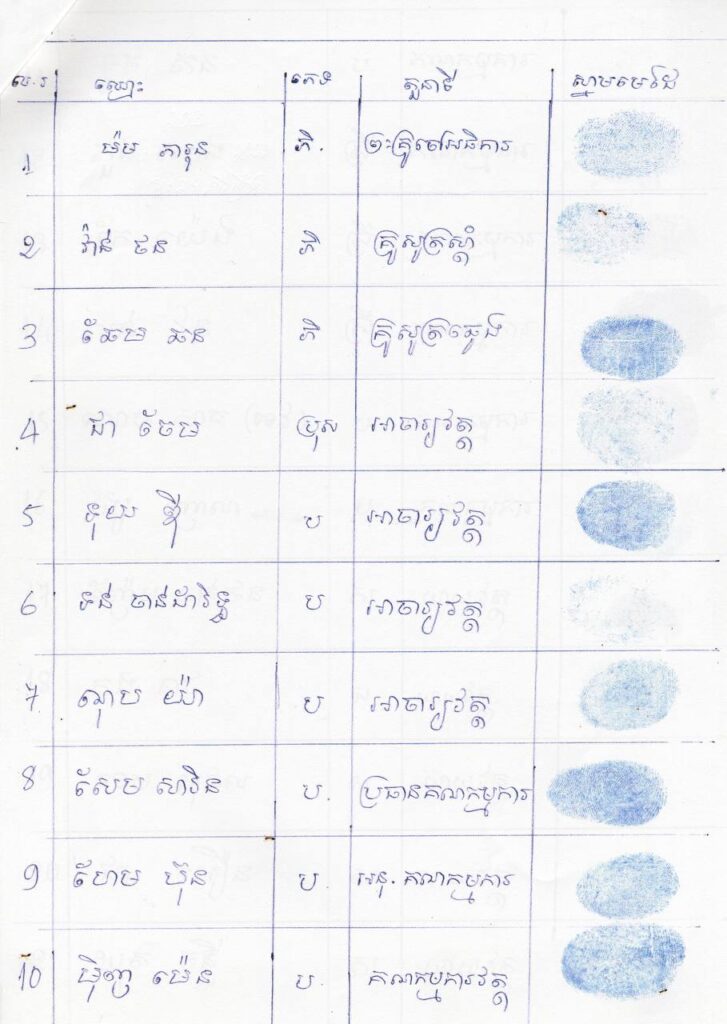 ល.រ ឈ្មោះ ភេទ តួនាទី ស្នាមមេដៃ
1 ម៉ម ភារុន ភិ. ព្រះគ្រូចៅអធិការ
2 វ៉ាន់ ថន ភិ គ្រូសូត្រស្តាំ
3 ឆែម ឆន ភិ គ្រូសូត្រឆ្វេង
4 ជា ចែម ប្រុស អាចារ្យវត្ត
5 ទុយ ប អាចារ្យវត្ត
6 ទន់ ចាន់ដារិទ្ធ ប អាចារ្យវត្ត
7 ណុប យ៉ា ប អាចារ្យវត្ត
8 សែម សារិន ប. ប្រធានគណកម្មការ
9 ហែម ប៊ុន ប. អនុ. គណកម្មការ
10 ម៉ិញ ម៉េន ប. គណកម្មការវត្ត